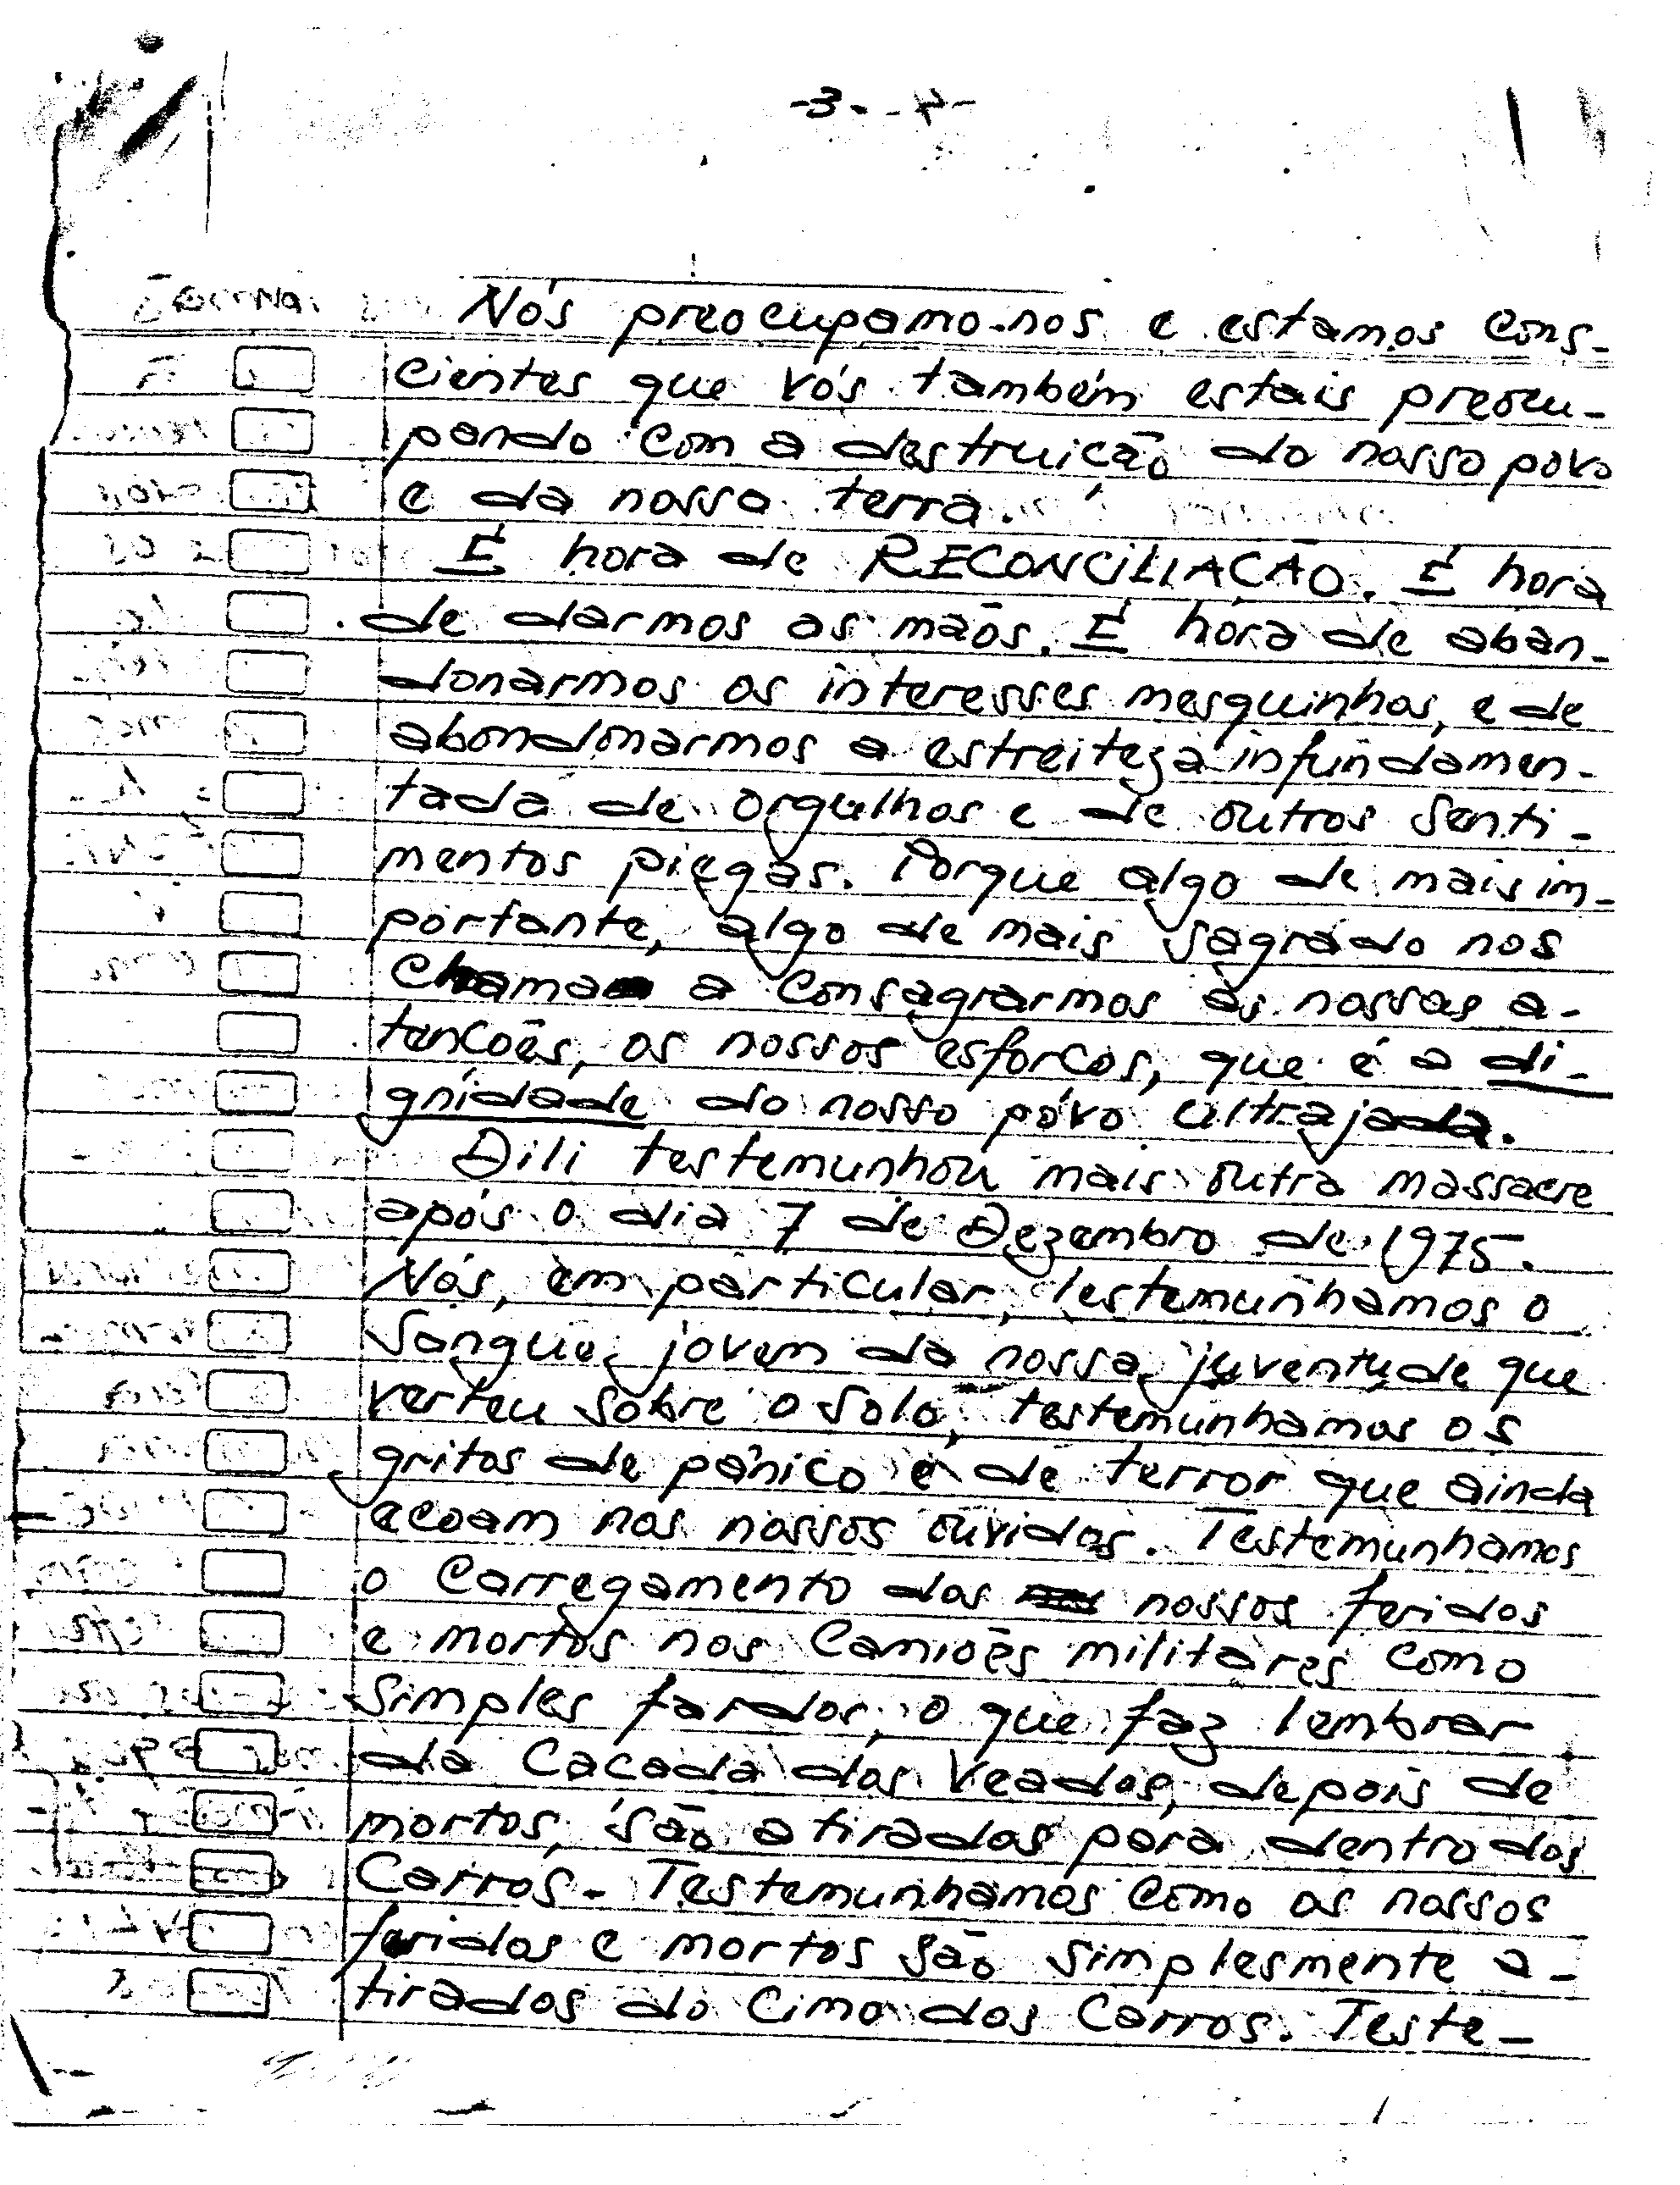 -3- -4-
Nós preocupamo-nos e estamos cons-
cientes que vós também estais preocu-
pando com a destruicão do nosso povo
e da nossa terra.
É hora de RECONCILIACÃO. É hora
de darmos as mãos. É hora de aban-
donarmos os interesses mesquinhos, e de
abondonarmos a estreiteza infundamen-
tada de orgulhos e de outros senti-
mentos piegas. Porque algo de mais im-
portante, algo de mais sagrado nos
chama a consagrarmos as nossas a-
tencões, os nossos esforcos, que é a di-
gnidade do nosso póvo ultrajada.
Dili testemunhou mais outra massacre
após o dia 7 de Dezembro de 1975.
Nós, em particular, testemunhamos o
sangue jovem da nossa juventude que
verteu sobre o solo, testemunhamos os
gritos de pánico e de terror que ainda
ecoam nos nossos ouvidos. Testemunhamos
o carregamento dos nossos feridos
e mortos nos camiões militares como
simples fardos, o que faz lembrar
da cacada dos veados, depois de
mortos, são atirados para dentro dos
carros. Testemunhamos como os nossos
feridos e mortos são simplesmente a-
tirados do cimo dos carros. Teste-